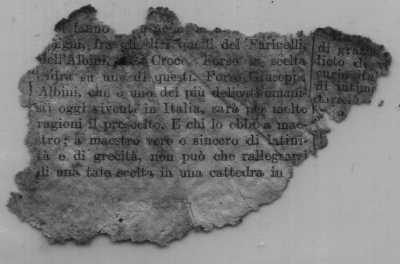 si fanno
degni, fra gli altri quelli del Faricelli,
dell'Albini, della Croce. Forse la scelta
cadrà su uno di questi. Forse Giuseppe
Albini, che è uno dei più delicati umani-
sti oggi viventi in Italia, sarà per molte
ragioni il prescelto. E chi lo ebbe a mae-
stro; a maestro vero o sincero di latini-
tà e di grecità, non può che rallegrarsi
di una tale scelta in una cattedra in
di
dicto
di